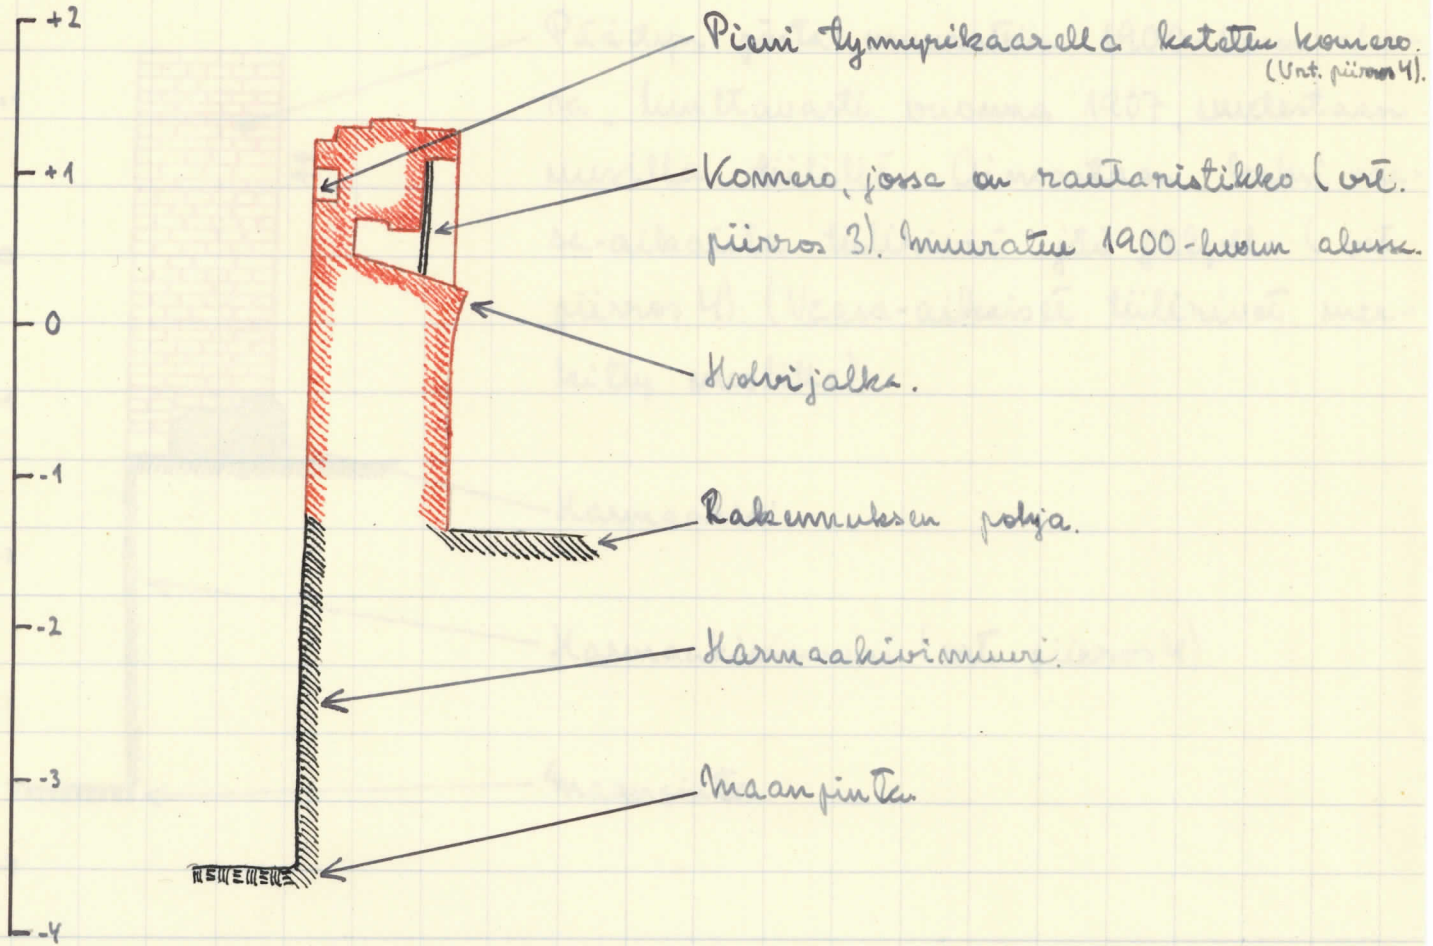 +2
Pieni tynnyrikaarella katettu komero.
(Vrt. piirros 4).
+1
Komero, jossa on rautaristikko (vrt.
piirros 3). Muurattu 1900-luvun alussa.
0
Holvijalka.
-1
Rakennuksen pohja.
-2
Harmaakivimuuri.
-3
Maanpinta.
-4